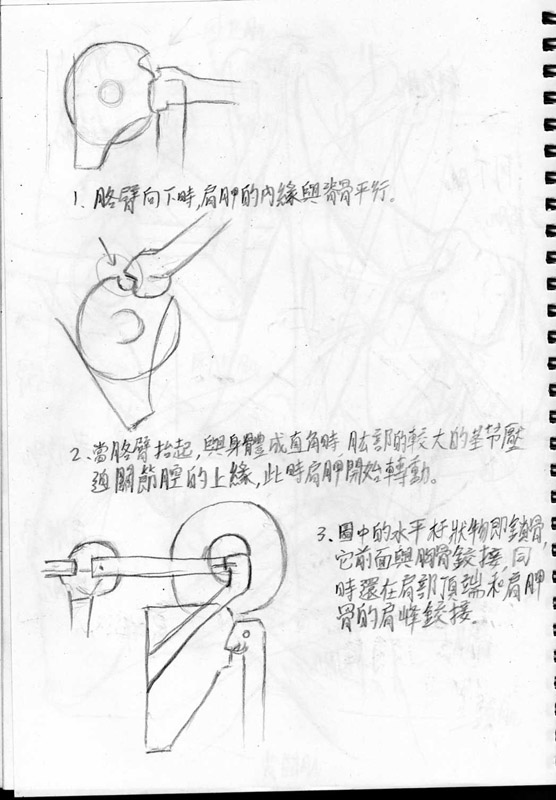 1、胳臂向下時,肩胛的內緣與脊骨平行。
2、當胳臂抬起,與身體成直角時 肱部的較大的基节壓
迫關節腔的上緣,此時肩胛開始轉動。
3、圖中的水平杆狀物即鎖骨,
它前面與胸骨鉸接,同
時還在肩部頂端和肩胛
骨的肩峰鉸接.